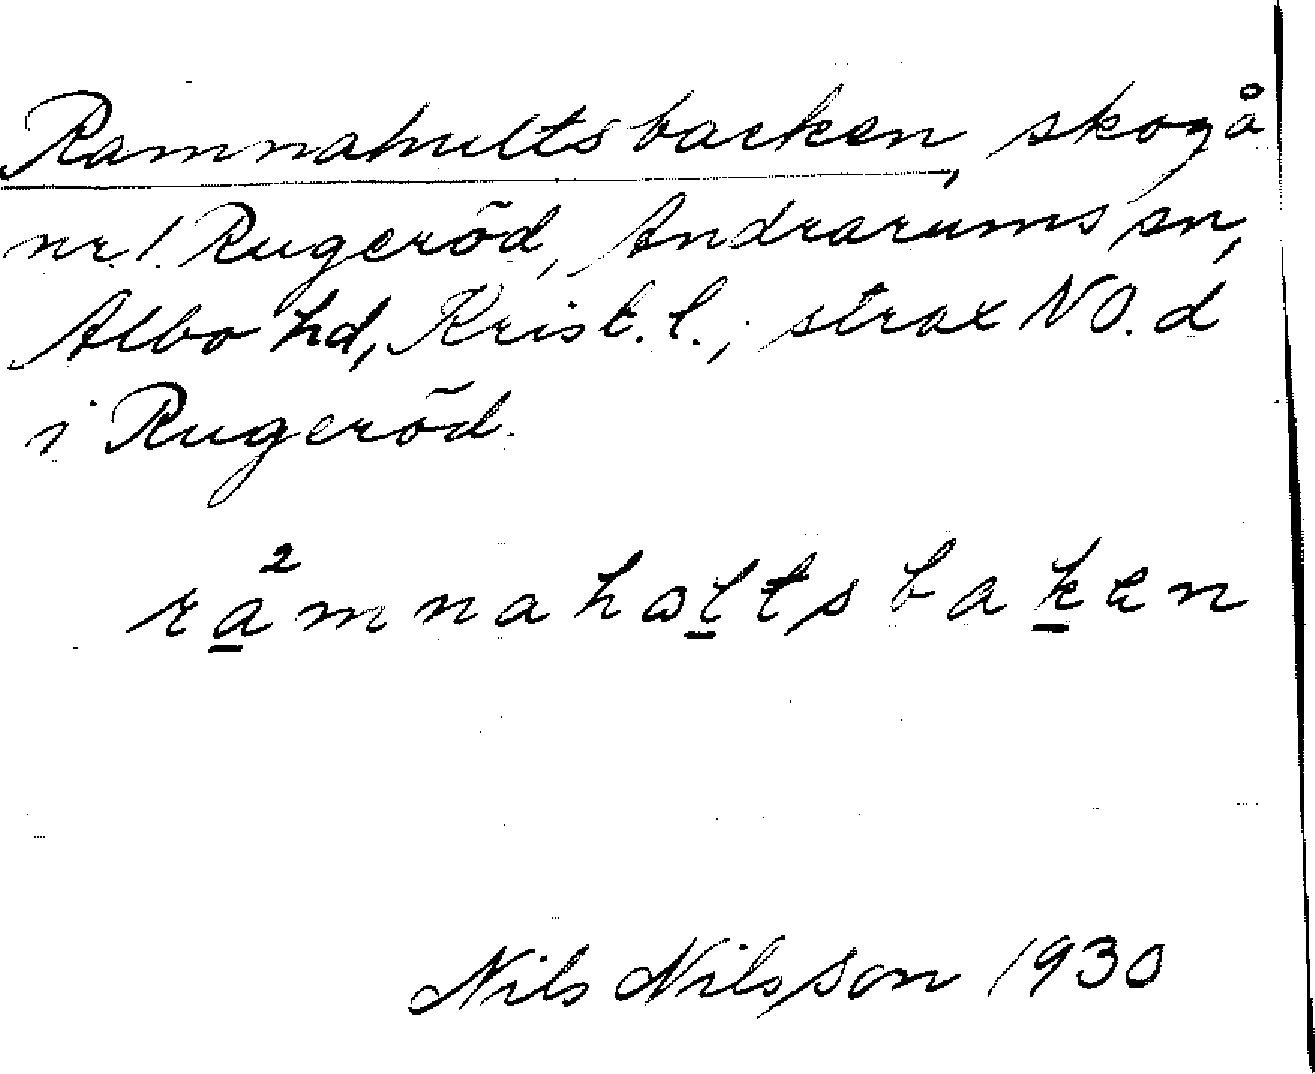 Ramnahultsbacken, skog å
nr. 1 Rugeröd, Andrarums sn,
Albo hd, Krist. l., strax NO. d
i Rugeröd.
ra²mnahɷltsbaken
Nils Nilsson 1930